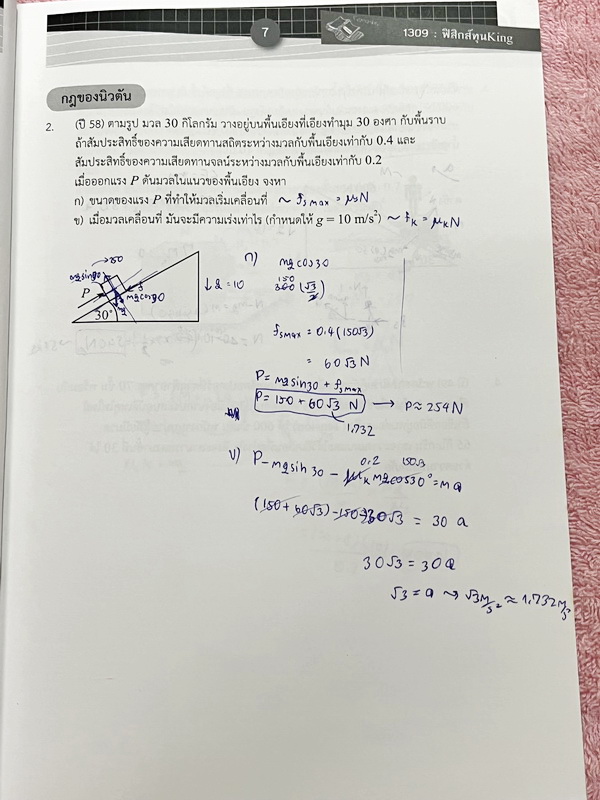 7
1309 : ฟิสิกส์ทุนKing
กฎของนิวตัน
2. (ปี 58) ตามรูป มวล 30 กิโลกรัม วางอยู่บนพื้นเอียงที่เอียงทำมุม 30 องศา กับพื้นราบ
ถ้าสัมประสิทธิ์ของความเสียดทานสถิตระหว่างมวลกับพื้นเอียงเท่ากับ 0.4 และ
สัมประสิทธิ์ของความเสียดทานจลน์ระหว่างมวลกับพื้นเอียงเท่ากับ 0.2
เมื่อออกแรง P ดันมวลในแนวของพื้นเอียง จงหา
ก) ขนาดของแรง P ที่ทำให้มวลเริ่มเคลื่อนที่ ~ fsmax = μsN
ข) เมื่อมวลเคลื่อนที่ มันจะมีความเร่งเท่าไร (กำหนดให้ g = 10 m/s²) ~ fk = μkN
mgsin30
P
mgcos30
30°
= 10
ก) mgcos30
150
300 (√3/2)
fsmax = 0.4(150√3)
= 60√3 N
P = mgsin30 + fsmax
P = 150 + 60√3 N → P ≈ 254 N
1.732
ข) P - mgsin30 - μk mgcos30° = ma
0.2 150√3
(150 + 60√3) - 150 - 30√3 = 30 a
30√3 = 30a
√3 = a → √3 m/s² ≈ 1.732 m/s